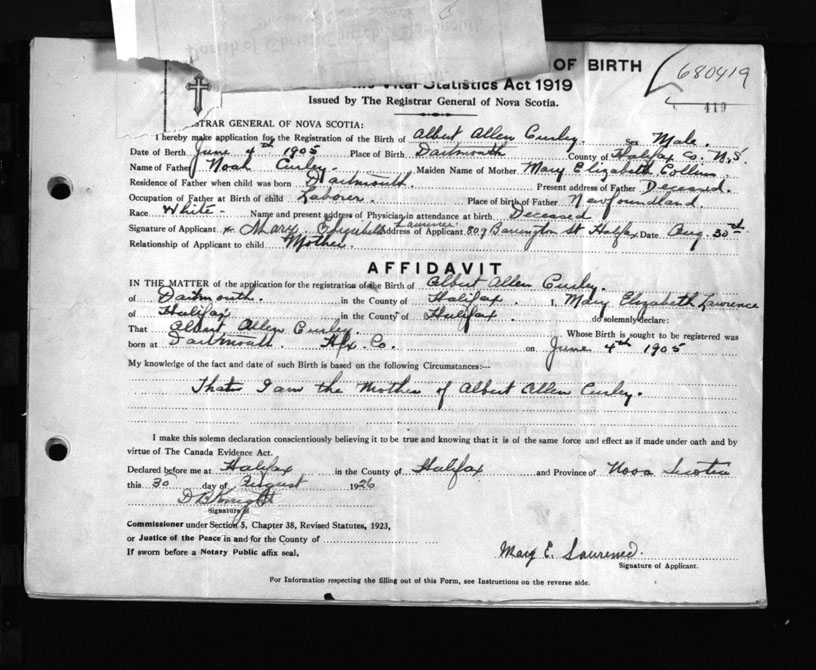 Parish of Christ Church, Dartmouth
OF BIRTH
680419
Vital Statistics Act 1919
419
Issued by The Registrar General of Nova Scotia.
STRAR GENERAL OF NOVA SCOTIA:
I hereby make application for the Registration of the Birth of Albert Allen Cursley. Sex Male.
Date of Birth June 4th 1905 Place of Birth Dartmouth County of Halifax Co. N.S.
Name of Father Noah Cursley. Maiden Name of Mother Mary Elizabeth Collins
Residence of Father when child was born Dartmouth. Present address of Father Deceased.
Occupation of Father at Birth of child Laborer. Place of birth of Father Newfoundland.
Race White Name and present address of Physician in attendance at birth Deceased
Signature of Applicant. x Mary Elizabeth Lawrence Address of Applicant 809 Barrington St Halifax Date Aug. 30th.
Relationship of Applicant to child Mother.
AFFIDAVIT
IN THE MATTER of the application for the registration of the Birth of Albert Allen Cursley.
of Dartmouth. in the County of Halifax. I, Mary Elizabeth Lawrence
of Halifax in the County of Halifax. do solemnly declare:
That Albert Allen Cursley Whose Birth is sought to be registered was
born at Dartmouth. Hfx Co. on June 4th 1905
My knowledge of the fact and date of such Birth is based on the following Circumstances:--
That I am the Mother of Albert Allen Cursley.
I make this solemn declaration conscientiously believing it to be true and knowing that it is of the same force and effect as if made under oath and by
virtue of The Canada Evidence Act.
Declared before me at Halifax in the County of Halifax and Province of Nova Scotia
this 30 day of August 1926
D B Knight
Signature of
Commissioner under Section 5, Chapter 38, Revised Statutes, 1923,
or Justice of the Peace in and for the County of
If sworn before a Notary Public affix seal,
Mary E. Lawrence.
Signature of Applicant.
For Information respecting the filling out of this Form, see Instructions on the reverse side.